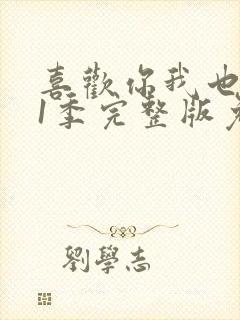 喜歡你我也
1季完整版免
劉學志